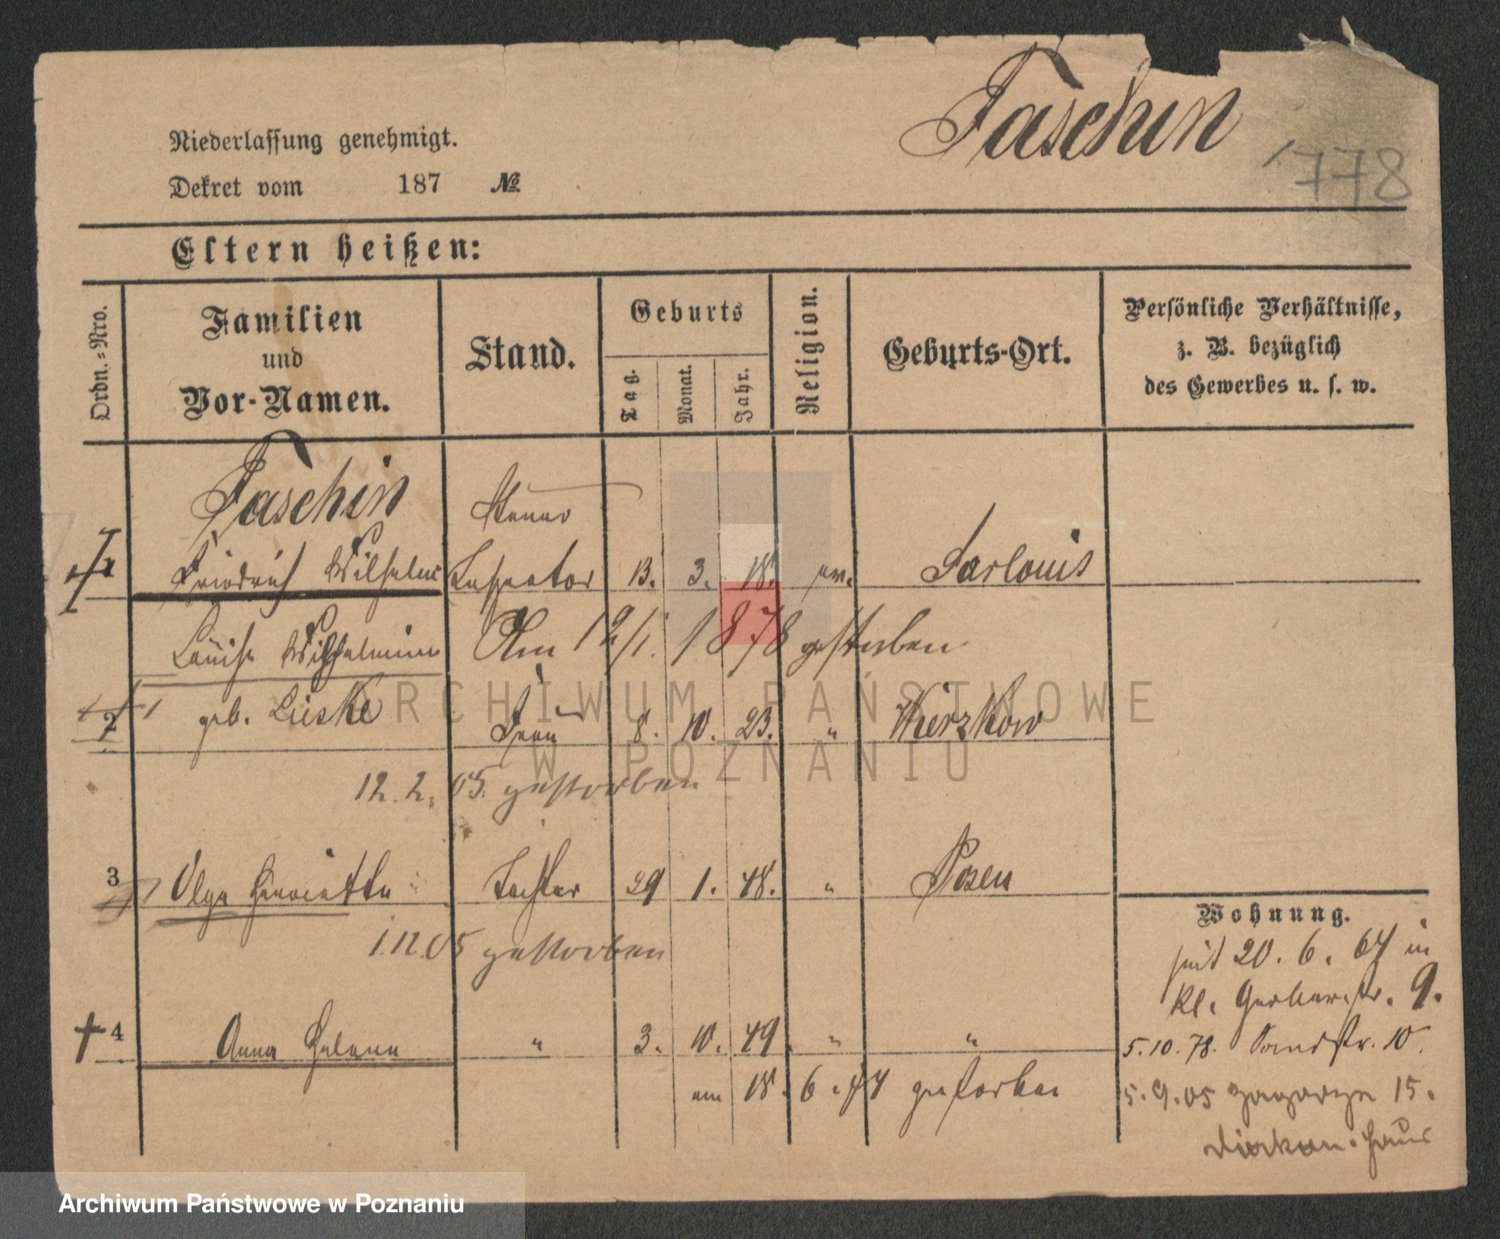 Taschin
778
Niederlassung genehmigt.
Dekret vom 187 №
Eltern heißen:
Ordn.-Nro.
Familien
und
Vor-Namen.
Stand.
Geburts
Tag.
Monat.
Jahr.
Religion.
Geburts-Ort.
Persönliche Verhältnisse,
z. B. bezüglich
des Gewerbes u. s. w.
Taschin Steuer
1 Friedrich Wilhelm Inspector 13. 3. 18. ev. Sarlouis
Louise Wilhelmine Am 12/1. 1878 gestorben
2 geb. Lieske Frau 8. 10. 23. " Wierzkow
12.2.05. gestorben
3 Olga Henriette Tochter 29 1. 48. " Posen
1.12.05 gestorben
Wohnung.
seit 20. 6. 67 in
kl. Gerberstr. 9.
4 Anna Helene " 3. 10. 49 " "
5.10.78. Sandstr. 10.
am 18. 6. 74 gestorben
5.9.05 Zagorze 15.
Diakon. Haus
ARCHIWUM PAŃSTWOWE
W POZNANIU
Archiwum Państwowe w Poznaniu